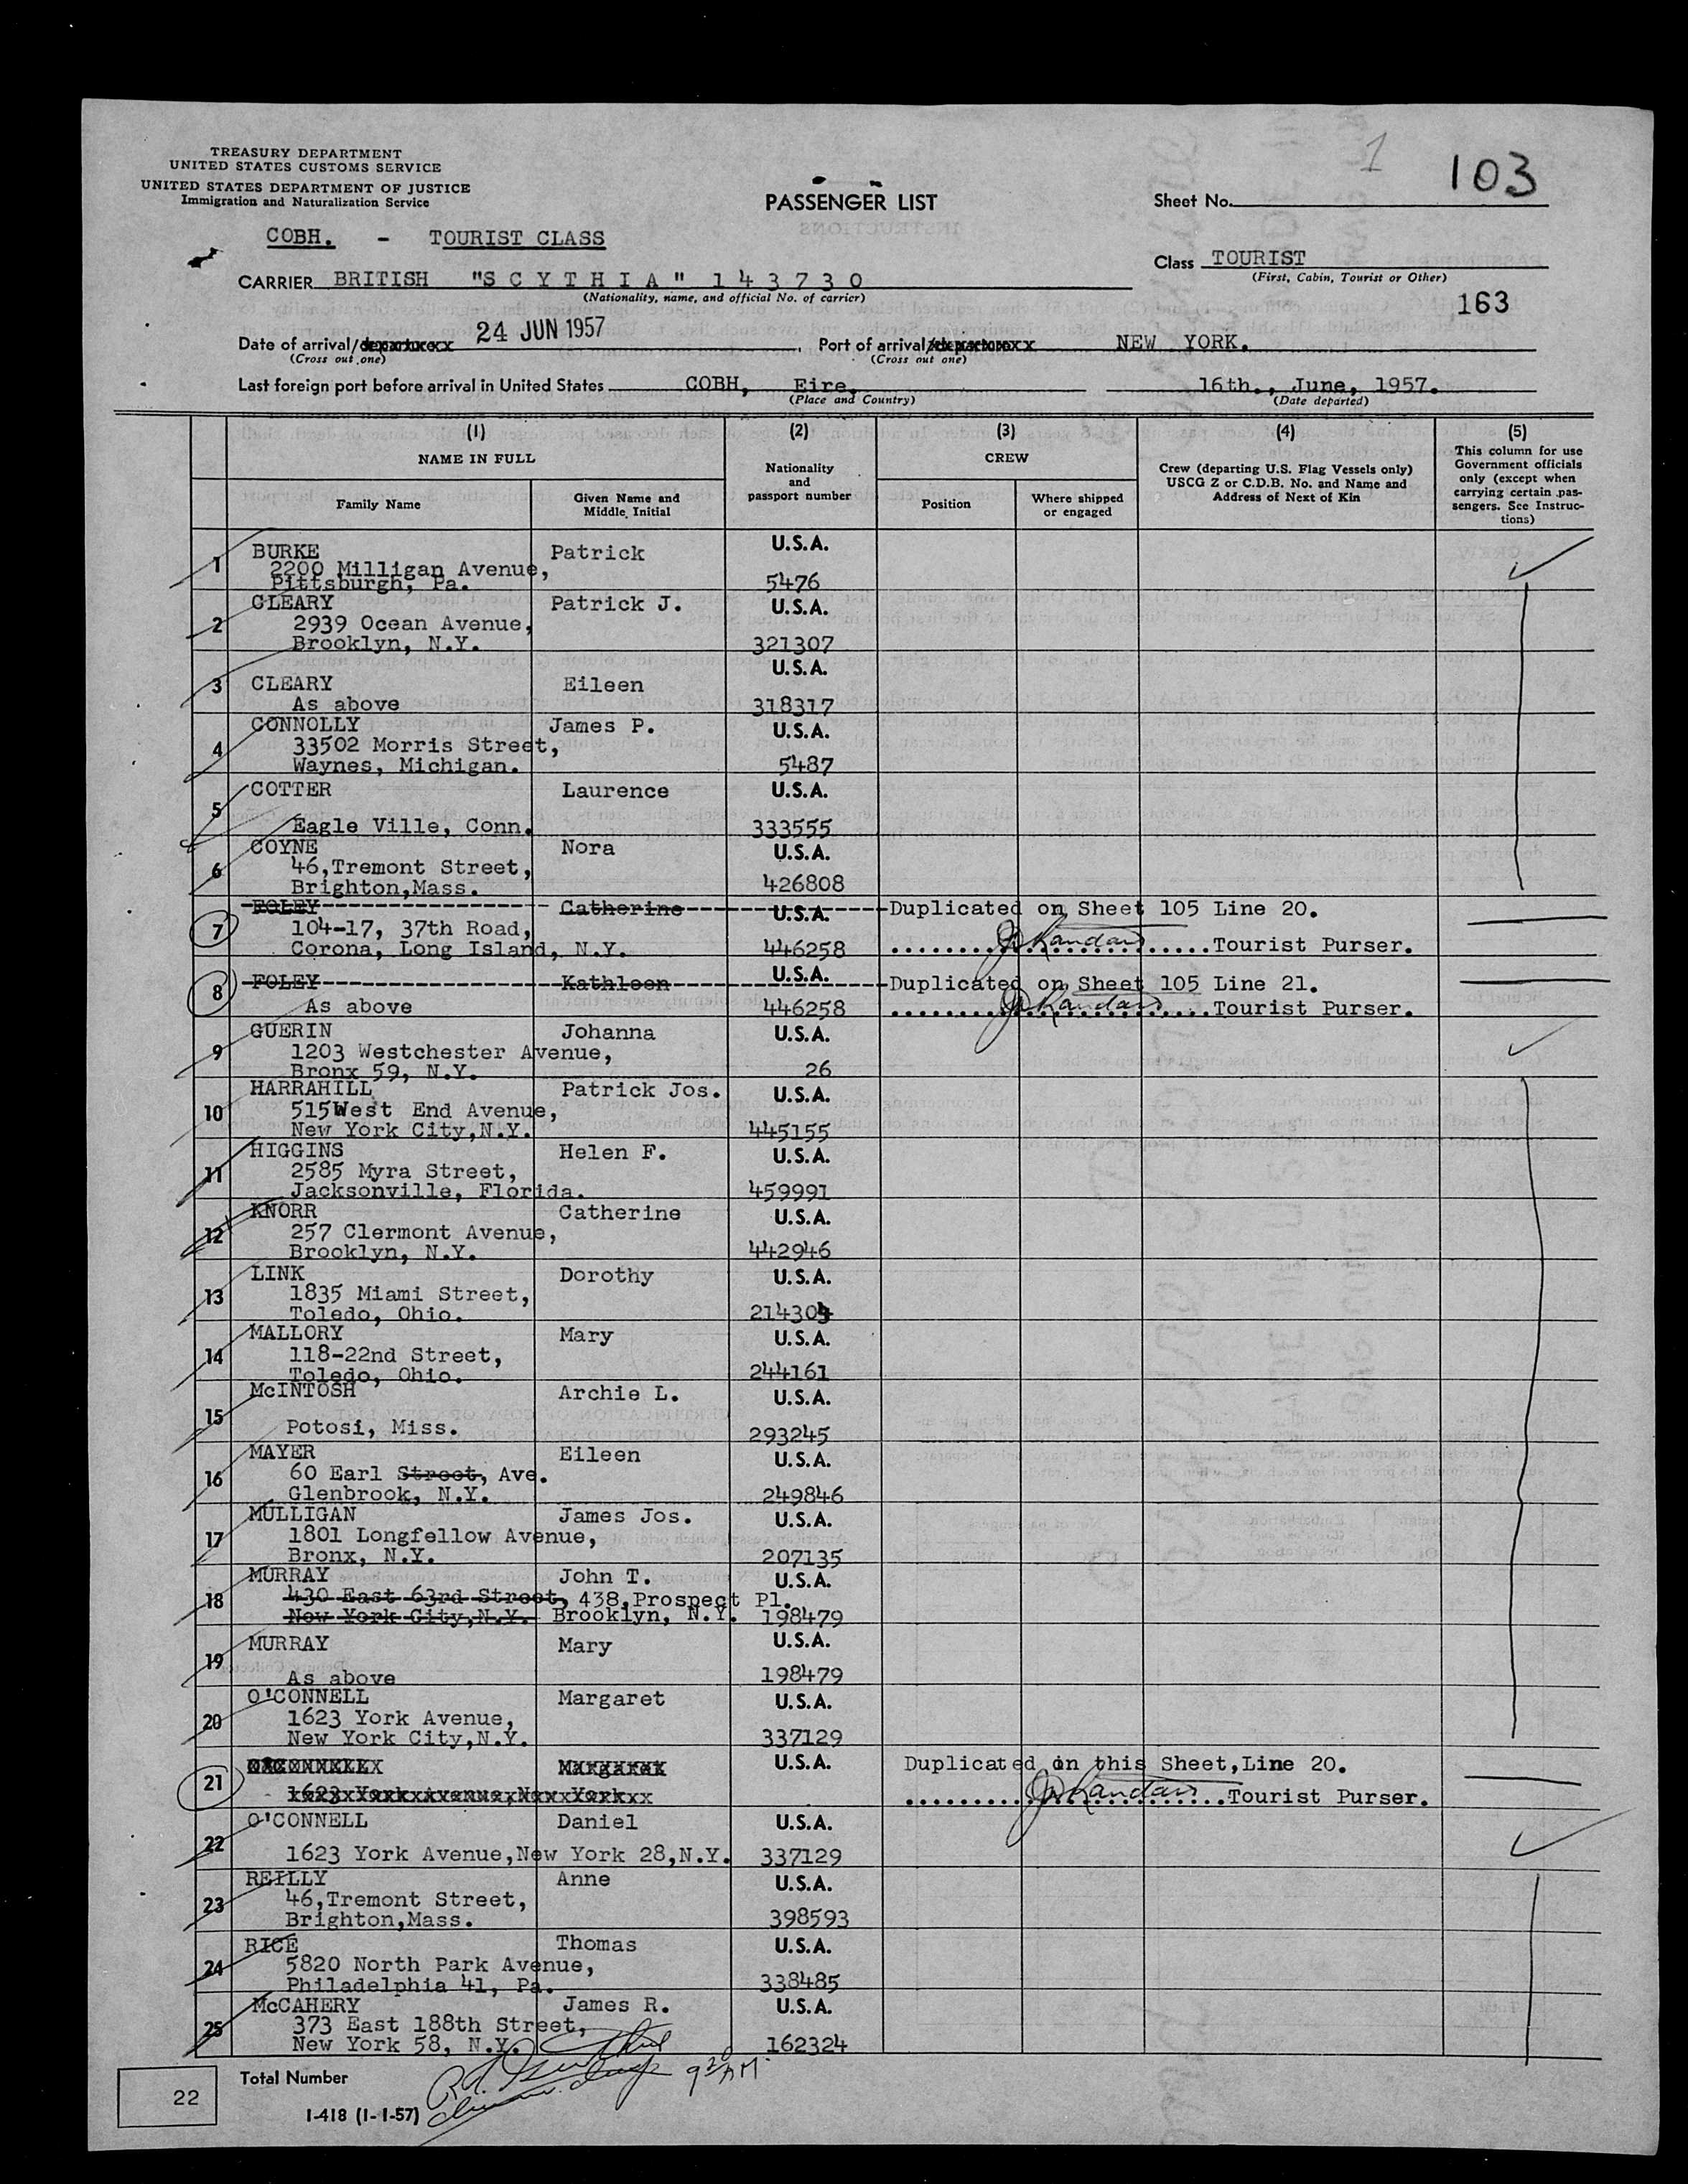 1 103
TREASURY DEPARTMENT
UNITED STATES CUSTOMS SERVICE
UNITED STATES DEPARTMENT OF JUSTICE
Immigration and Naturalization Service
PASSENGER LIST
Sheet No.
COBH. - TOURIST CLASS
Class TOURIST
(First, Cabin, Tourist or Other)
CARRIER BRITISH "S C Y T H I A" 1 4 3 7 3 0
(Nationality, name, and official No. of carrier)
163
Date of arrival/departure 24 JUN 1957 Port of arrival/departure NEW YORK.
(Cross out one) (Cross out one)
Last foreign port before arrival in United States COBH, Eire, 16th., June, 1957.
(Place and Country) (Date departed)
(1) (2) (3) (4) (5)
NAME IN FULL
Family Name
Given Name and Middle Initial
Nationality and passport number
CREW
Position
Where shipped or engaged
Crew (departing U.S. Flag Vessels only)
USCG Z or C.D.B. No. and Name and
Address of Next of Kin
This column for use
Government officials
only (except when
carrying certain pas-
sengers. See Instruc-
tions)
1 BURKE Patrick U.S.A.
2200 Milligan Avenue,
Pittsburgh, Pa. 5476
2 CLEARY Patrick J. U.S.A.
2939 Ocean Avenue,
Brooklyn, N.Y. 321307
3 CLEARY Eileen U.S.A.
As above 318317
4 CONNOLLY James P. U.S.A.
33502 Morris Street,
Waynes, Michigan. 5487
5 COTTER Laurence U.S.A.
Eagle Ville, Conn. 333555
6 COYNE Nora U.S.A.
46,Tremont Street,
Brighton,Mass. 426808
7 FOLEY Catherine U.S.A. Duplicated on Sheet 105 Line 20.
104-17, 37th Road,
Corona, Long Island, N.Y. 446258 Tourist Purser.
8 FOLEY Kathleen U.S.A. Duplicated on Sheet 105 Line 21.
As above 446258 Tourist Purser.
9 GUERIN Johanna U.S.A.
1203 Westchester Avenue,
Bronx 59, N.Y. 26
10 HARRAHILL Patrick Jos. U.S.A.
515West End Avenue,
New York City,N.Y. 445155
11 HIGGINS Helen F. U.S.A.
2585 Myra Street,
Jacksonville, Florida. 459991
12 KNORR Catherine U.S.A.
257 Clermont Avenue,
Brooklyn, N.Y. 442946
13 LINK Dorothy U.S.A.
1835 Miami Street,
Toledo, Ohio.
14 MALLORY Mary U.S.A.
118-22nd Street,
Toledo, Ohio. 244161
15 McINTOSH Archie L. U.S.A.
Potosi, Miss. 293245
16 MAYER Eileen U.S.A.
60 Earl Street, Ave.
Glenbrook, N.Y. 249846
17 MULLIGAN James Jos. U.S.A.
1801 Longfellow Avenue,
Bronx, N.Y. 207135
18 MURRAY John T. U.S.A.
430 East 63rd Street, 438,Prospect Pl.
New York City,N.Y. Brooklyn, N.Y. 198479
19 MURRAY Mary U.S.A.
As above 198479
20 O'CONNELL Margaret U.S.A.
1623 York Avenue,
New York City,N.Y. 337129
21 O'CONNELL Margaret U.S.A. Duplicated on this Sheet,Line 20.
1623 York Avenue,New York Tourist Purser.
22 O'CONNELL Daniel U.S.A.
1623 York Avenue,New York 28,N.Y. 337129
23 REILLY Anne U.S.A.
46,Tremont Street,
Brighton,Mass. 398593
24 RICE Thomas U.S.A.
5820 North Park Avenue,
Philadelphia 41, Pa. 338485
25 McCAHERY James R. U.S.A.
373 East 188th Street,
New York 58, N.Y. 162324
22 Total Number
I-418 (1-1-57)